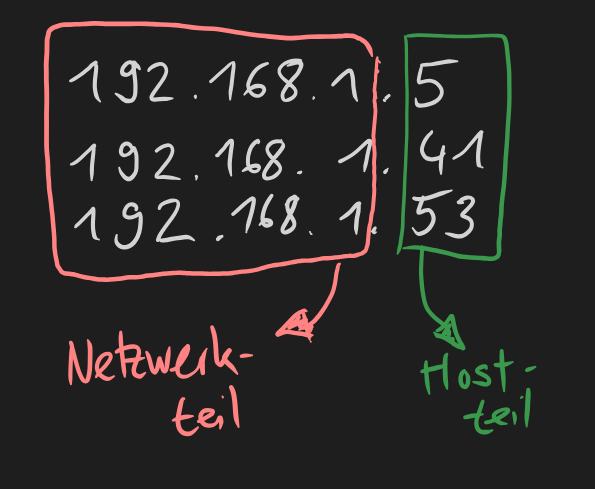 192.168.1.5
192.168.1.41
192.168.1.53
Netzwerk-
teil
Host-
teil